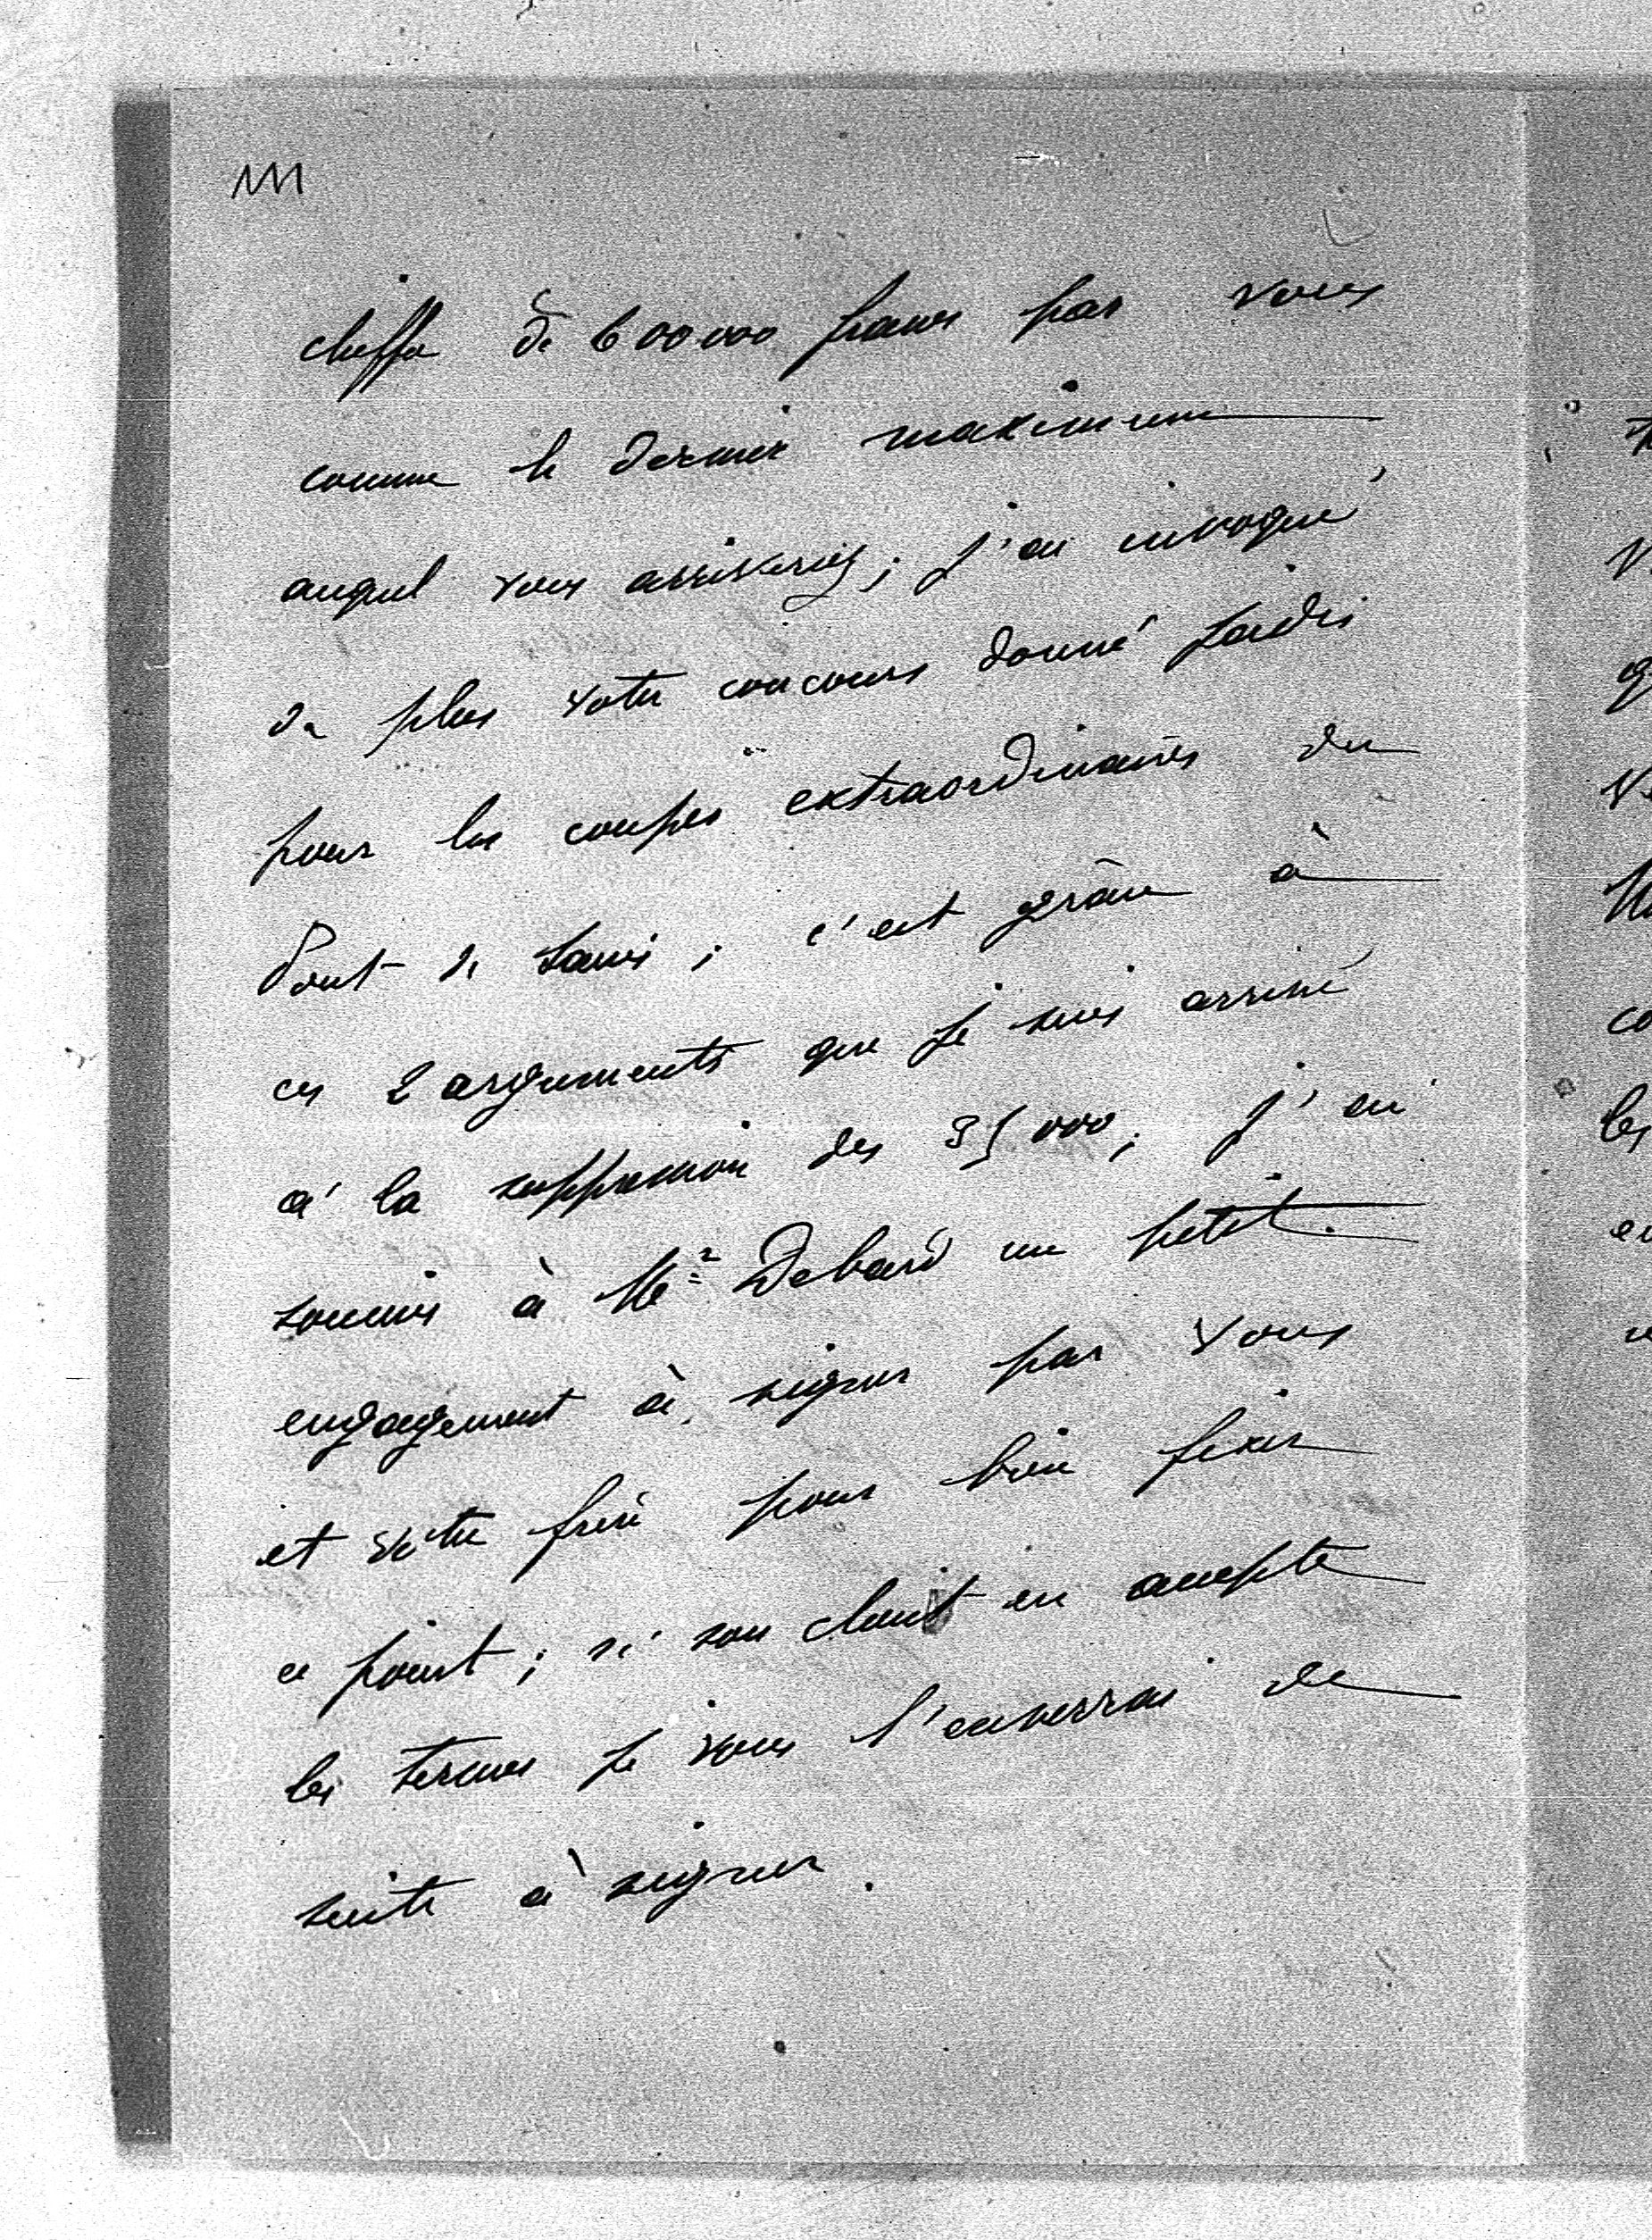 chiffre de 600000 francs par vous
comme le dernier maximum
auquel vous arriveriez ; j'ai invoqué
de plus votre concours donné jadis
pour les coupes extraordinaires du
Pont de ; c'est grâce à
ces 2 arguments que je suis arrivé
à la suppression des 35000 ; j'ai
soumis à Me Debard un petit
engagement à signer par vous
et votre frère pour bien fixer
ce point ; si son client en accepte
les termes je vous l'enverrai de
suite à signer .